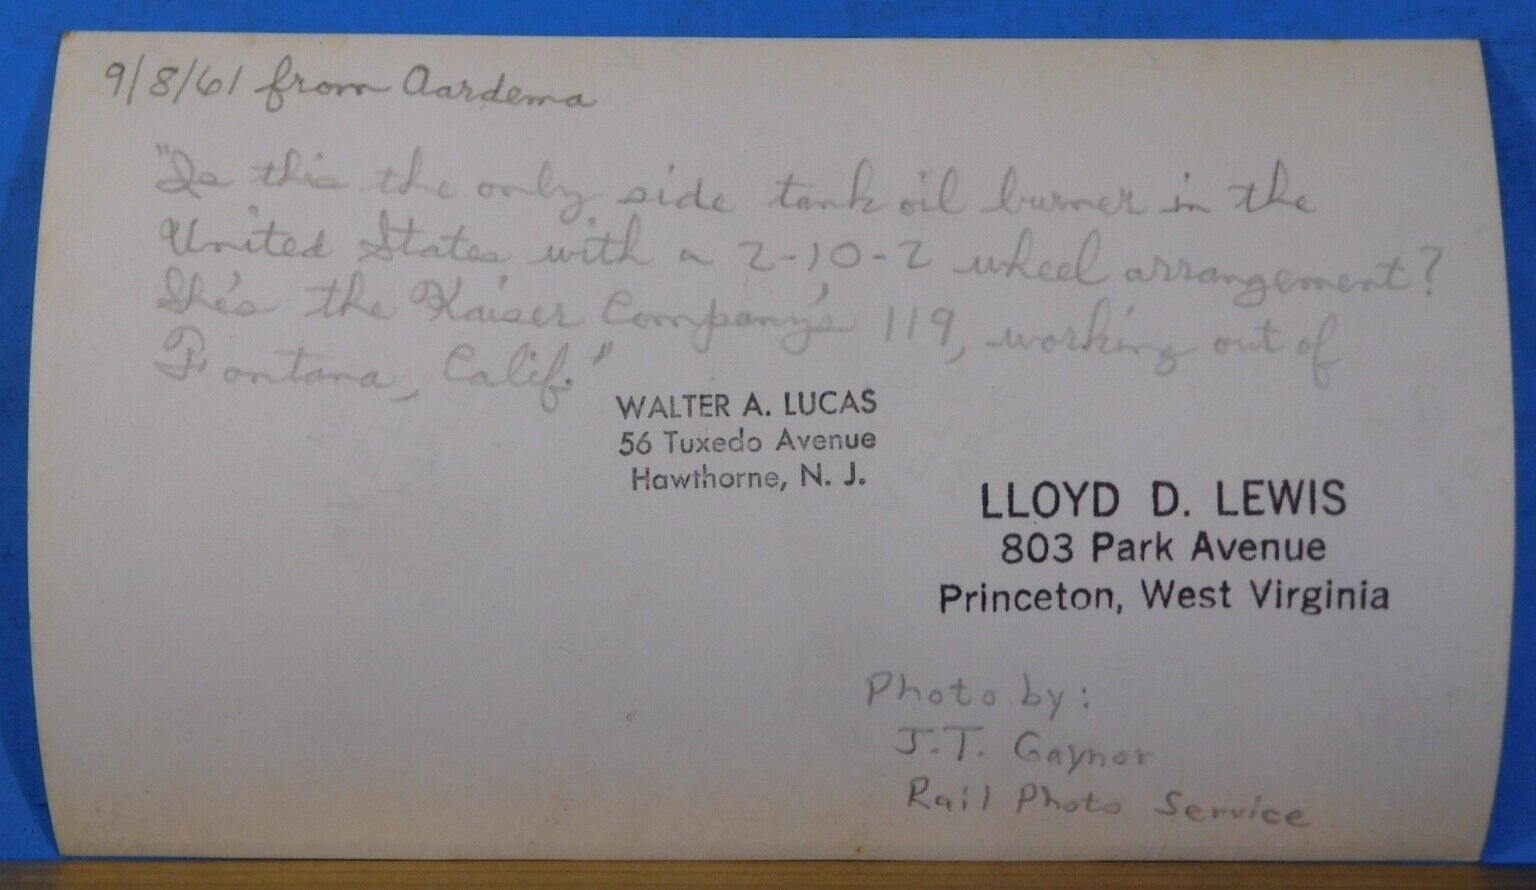 9/8/61 from Aardema
"Is this the only side tank oil burner in the
United States with a 2-10-2 wheel arrangement?
She's the Kaiser Company's 119, working out of
Fontana, Calif."
WALTER A. LUCAS
56 Tuxedo Avenue
Hawthorne, N. J.
LLOYD D. LEWIS
803 Park Avenue
Princeton, West Virginia
Photo by:
J.T. Gaynor
Rail Photo Service